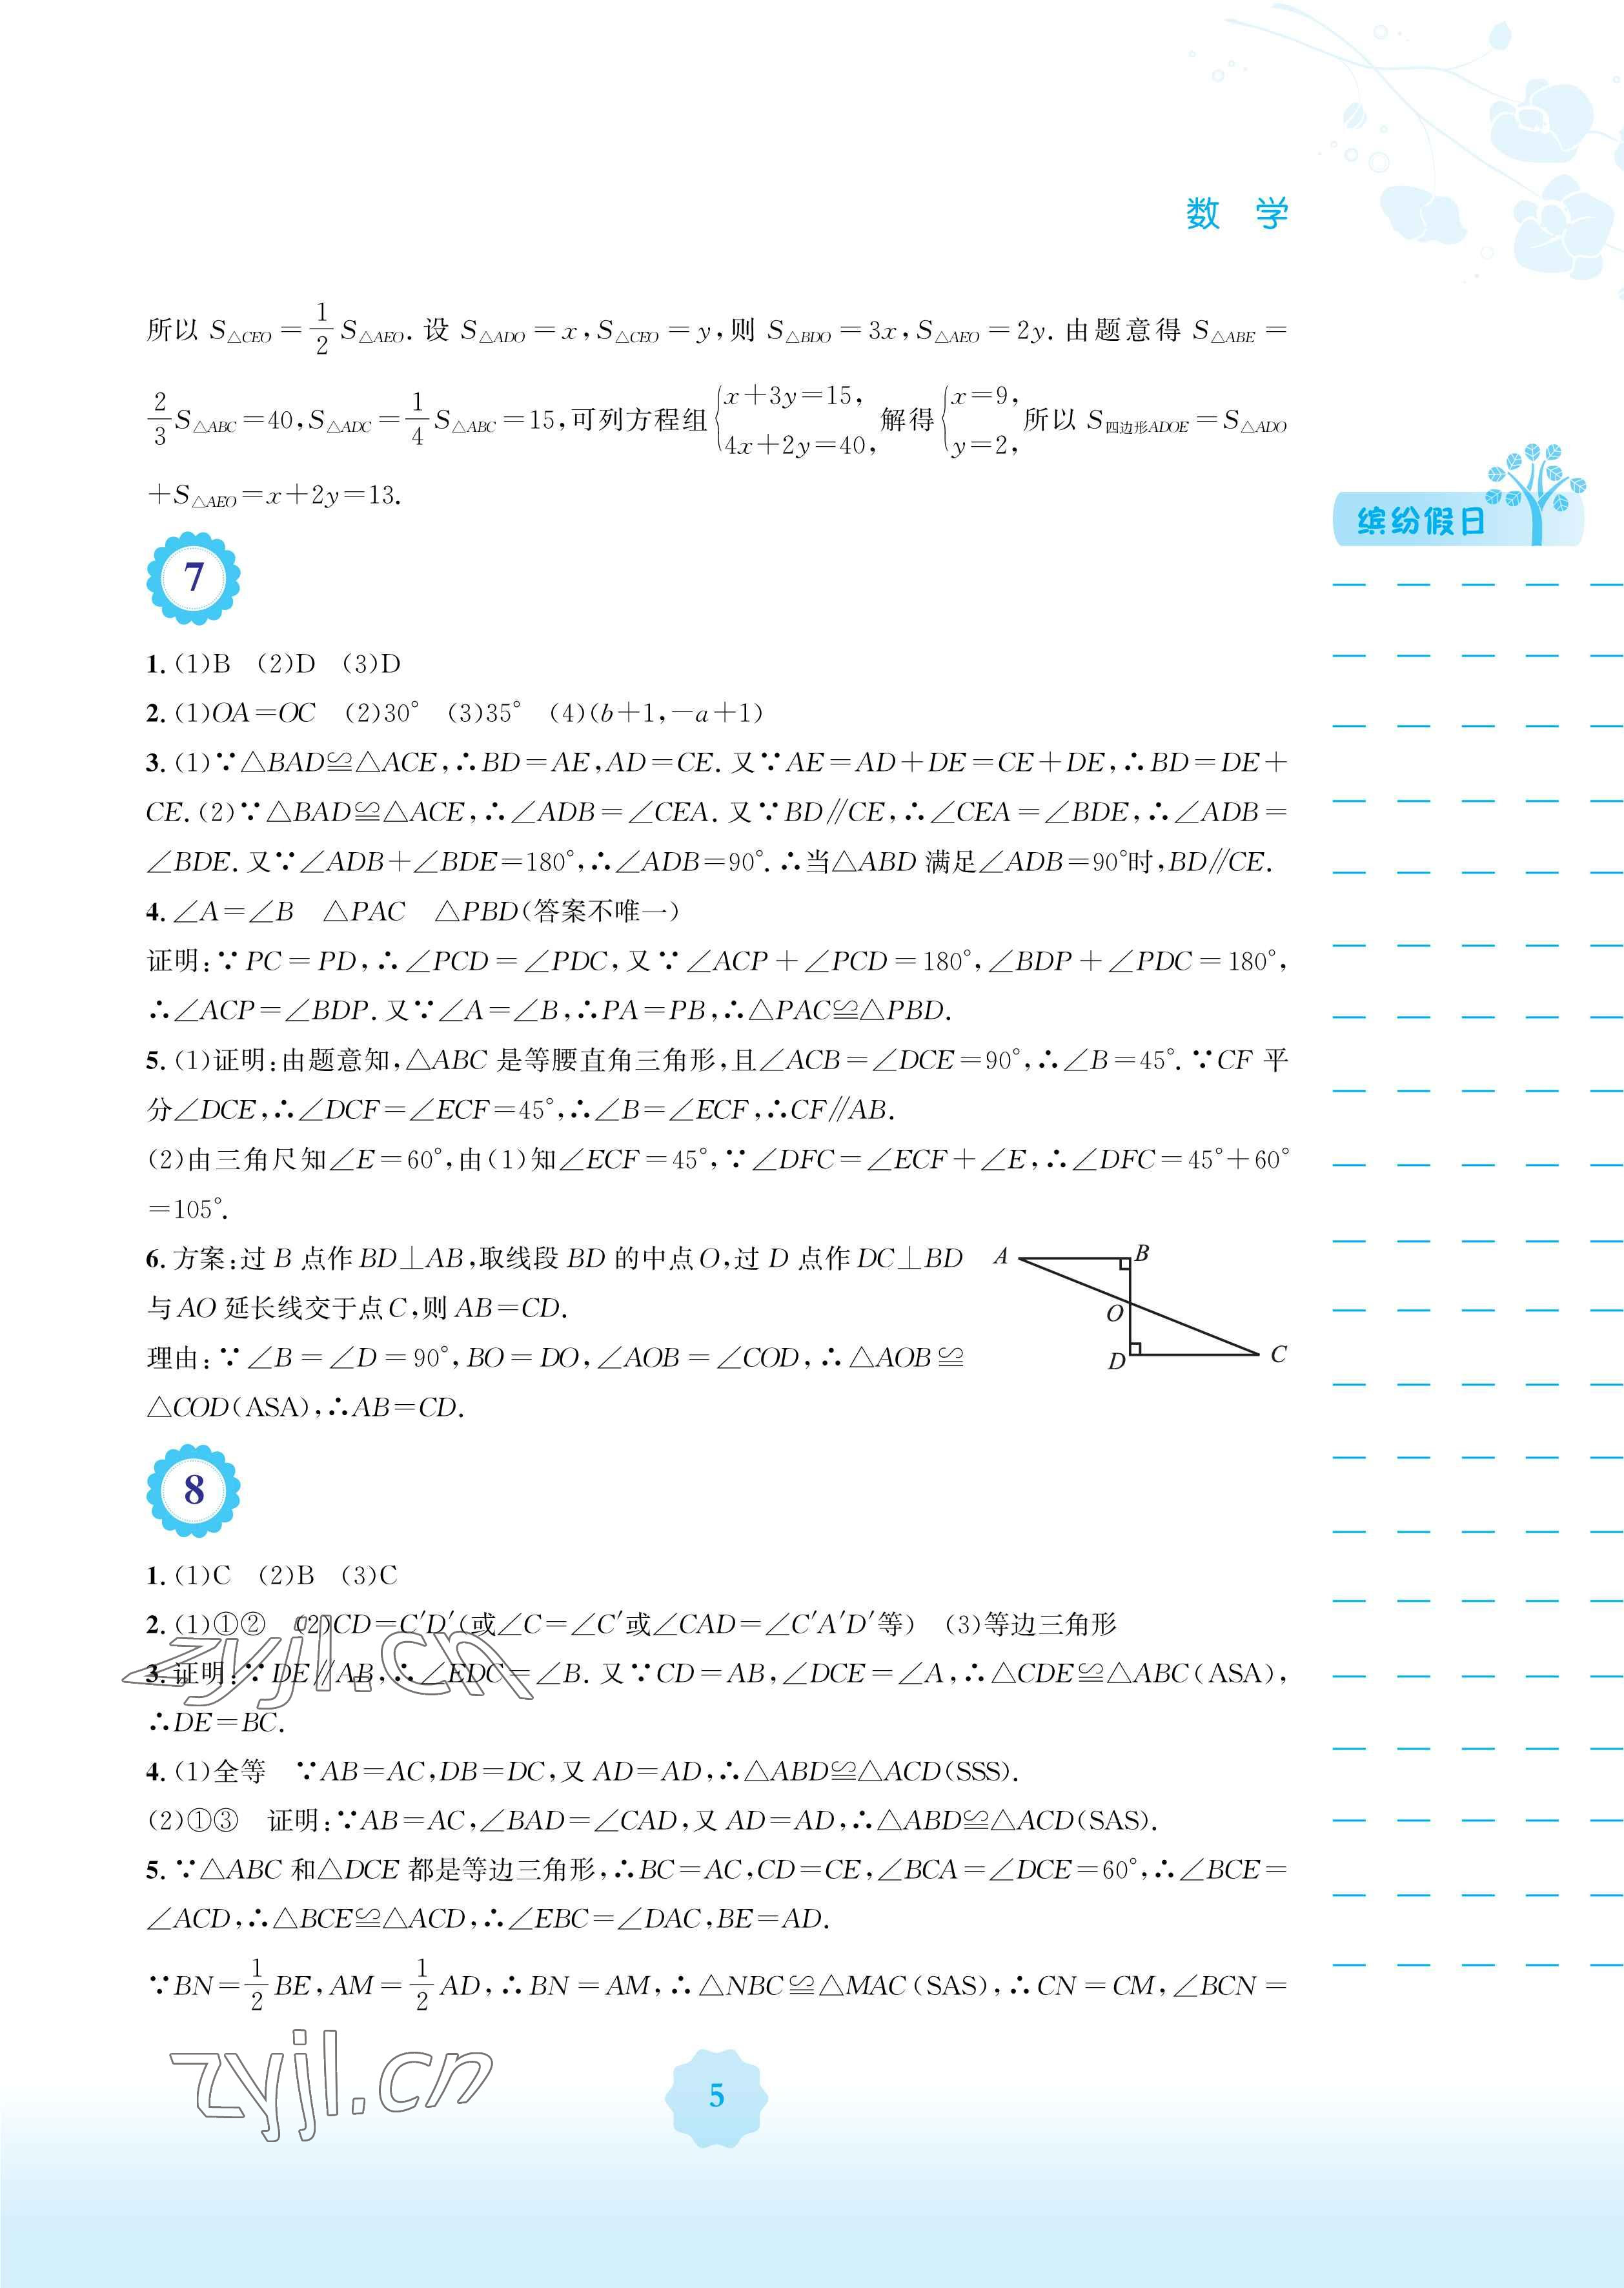 数 学
所以 S△CEO=1/2 S△AEO. 设 S△ADO=x,S△CEO=y,则 S△BDO=3x,S△AEO=2y. 由题意得 S△ABE=
2/3 S△ABC=40,S△ADC=1/4 S△ABC=15,可列方程组{x+3y=15, 4x+2y=40, 解得{x=9, y=2, 所以 S四边形ADOE=S△ADO
+S△AEO=x+2y=13.
缤纷假日
7
1. (1)B (2)D (3)D
2. (1)OA=OC (2)30° (3)35° (4)(b+1,-a+1)
3. (1)∵△BAD≌△ACE,∴BD=AE,AD=CE. 又∵AE=AD+DE=CE+DE,∴BD=DE+
CE. (2)∵△BAD≌△ACE,∴∠ADB=∠CEA. 又∵BD∥CE,∴∠CEA=∠BDE,∴∠ADB=
∠BDE. 又∵∠ADB+∠BDE=180°,∴∠ADB=90°. ∴当△ABD 满足∠ADB=90°时,BD∥CE.
4. ∠A=∠B △PAC △PBD(答案不唯一)
证明:∵PC=PD,∴∠PCD=∠PDC,又∵∠ACP+∠PCD=180°,∠BDP+∠PDC=180°,
∴∠ACP=∠BDP. 又∵∠A=∠B,∴PA=PB,∴△PAC≌△PBD.
5. (1)证明:由题意知,△ABC 是等腰直角三角形,且∠ACB=∠DCE=90°,∴∠B=45°. ∵CF 平
分∠DCE,∴∠DCF=∠ECF=45°,∴∠B=∠ECF,∴CF∥AB.
(2)由三角尺知∠E=60°,由(1)知∠ECF=45°,∵∠DFC=∠ECF+∠E,∴∠DFC=45°+60°
=105°.
6. 方案:过 B 点作 BD⊥AB,取线段 BD 的中点 O,过 D 点作 DC⊥BD
与 AO 延长线交于点 C,则 AB=CD.
理由:∵∠B=∠D=90°,BO=DO,∠AOB=∠COD,∴△AOB≌
△COD(ASA),∴AB=CD.
A
B
O
D
C
8
1. (1)C (2)B (3)C
2. (1)①② (2)CD=C′D′(或∠C=∠C′或∠CAD=∠C′A′D′等) (3)等边三角形
3. 证明:∵DE∥AB,∴∠EDC=∠B. 又∵CD=AB,∠DCE=∠A,∴△CDE≌△ABC(ASA),
∴DE=BC.
4. (1)全等 ∵AB=AC,DB=DC,又 AD=AD,∴△ABD≌△ACD(SSS).
(2)①③ 证明:∵AB=AC,∠BAD=∠CAD,又 AD=AD,∴△ABD≌△ACD(SAS).
5. ∵△ABC 和△DCE 都是等边三角形,∴BC=AC,CD=CE,∠BCA=∠DCE=60°,∴∠BCE=
∠ACD,∴△BCE≌△ACD,∴∠EBC=∠DAC,BE=AD.
∵BN=1/2 BE,AM=1/2 AD,∴BN=AM,∴△NBC≌△MAC(SAS),∴CN=CM,∠BCN=
zyjl.cn
zyjl.cn
5